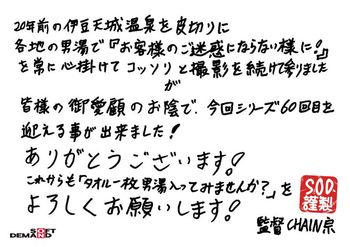 20年前の伊豆天城温泉を皮切りに
各地の男湯で『お客様のご迷惑にならない様に!』
を常に心掛けてコッソリと撮影を続けて参りました
が
皆様の御愛顧のお陰で、今回シリーズ60回目を
迎える事が出来ました!
ありがとうございます!
これからも「タオル一枚男湯入ってみませんか?」を
よろしくお願いします!
S.O.D.
謹製
SOFT
DEMAND
監督 CHAIN泉